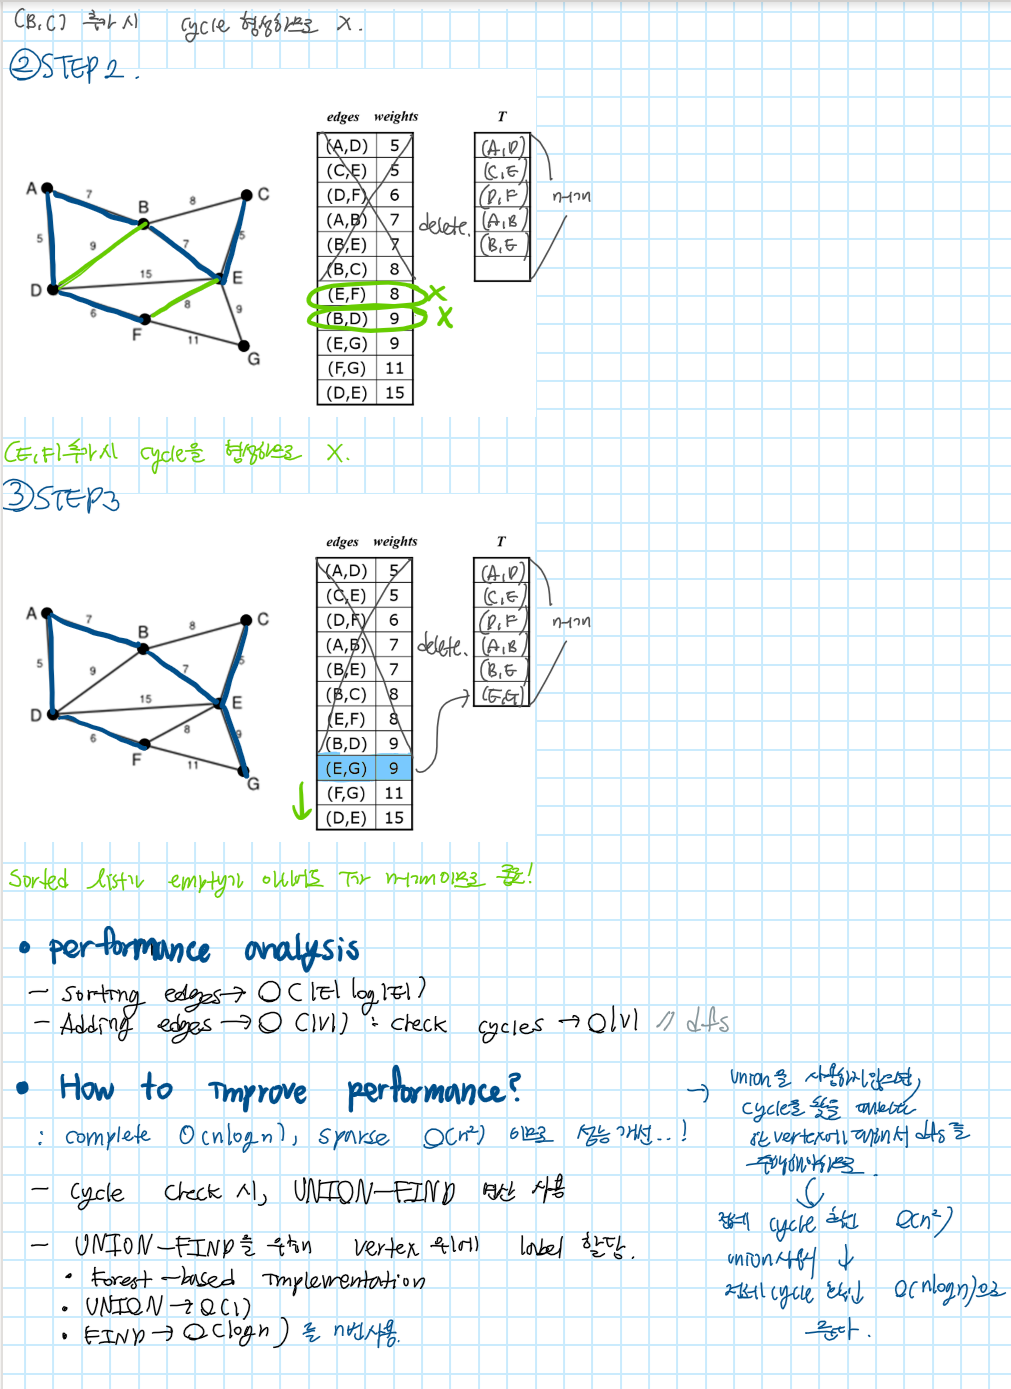 (B,C) 추가 시 cycle 형성하므로 X.
② STEP 2.
edges weights T
(A,D) 5 (A,D)
(C,E) 5 (C,E)
(D,F) 6 (D,F)
(A,B) 7 (A,B)
(B,E) 7 (B,E)
(B,C) 8
(E,F) 8 X
(B,D) 9 X
(E,G) 9
(F,G) 11
(D,E) 15
delete.
n-1개
A 7 B 8 C
5 9 7 5
D 15 E
6 8 9
F 11 G
(E,F) 추가 시 cycle을 형성하므로 X.
③ STEP3
edges weights T
(A,D) 5 (A,D)
(C,E) 5 (C,E)
(D,F) 6 (D,F)
(A,B) 7 (A,B)
(B,E) 7 (B,E)
(B,C) 8 (E,G)
(E,F) 8
(B,D) 9
(E,G) 9
(F,G) 11
(D,E) 15
delete.
n-1개
A 7 B 8 C
5 9 7 5
D 15 E
6 8 9
F 11 G
Sorted list가 empty가 아니어도 T가 n-1개이므로 종료!
• performance analysis
- Sorting edges → O(|E| log|E|)
- Adding edges → O(|V|) : check cycles → O|V| // dfs
• How to improve performance?
: complete O(nlogn), sparse O(n²) 이므로 성능 개선..!
- Cycle check 시, UNION-FIND 연산 사용
- UNION-FIND를 위해 vertex 위에 label 할당.
• Forest-based implementation
• UNION → O(1)
• FIND → O(logn) 를 n번 사용.
→ union을 사용하지 않으면,
cycle을 찾을 때마다
한 vertex에 대해서 dfs를
수행해야하므로.
전체 cycle 확인 O(n²)
union 사용시 ↓
전체 cycle 확인 O(nlogn)으로
준다.